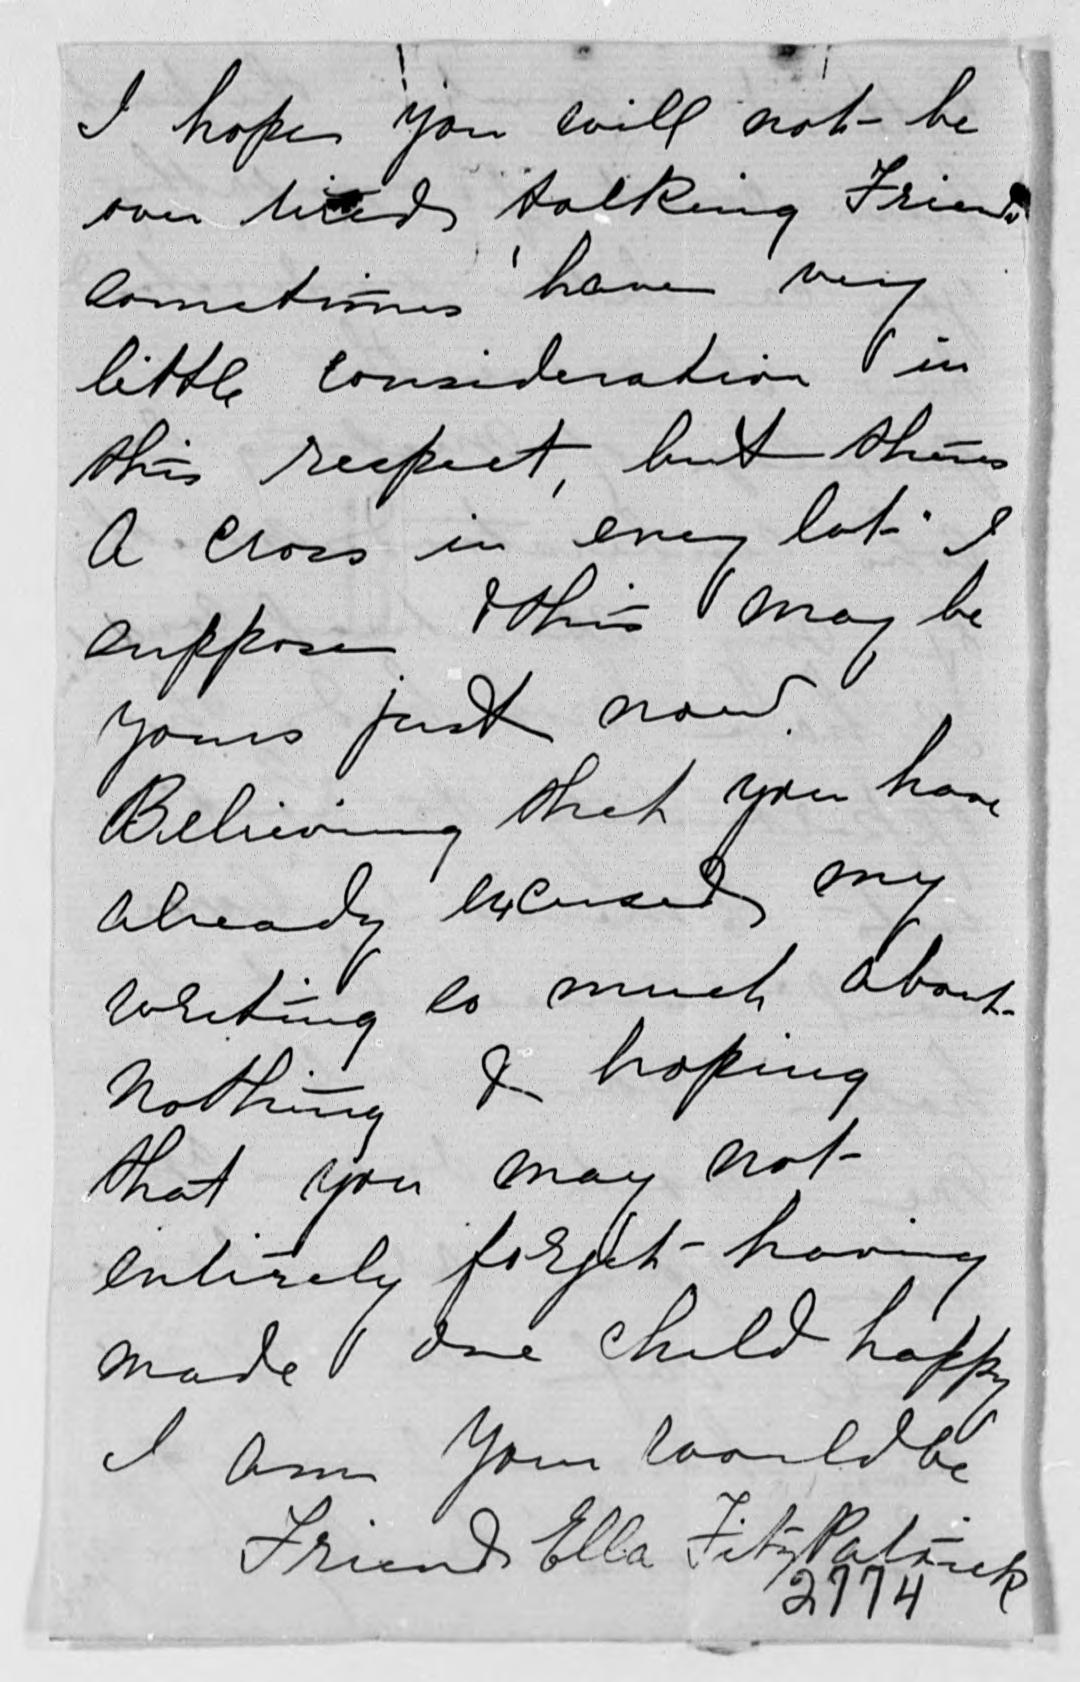 I hope you will not be
over tired talking Friends
sometimes have very
little consideration in
this respect, but theres
A cross in every lot I
suppose & this may be
yours just now.
Believing that you have
already excused my
writing so much about
Nothing & hoping
that you may not
entirely forget having
made one child happy
I am Your would be
Friend Ella FitzPatrick
2774